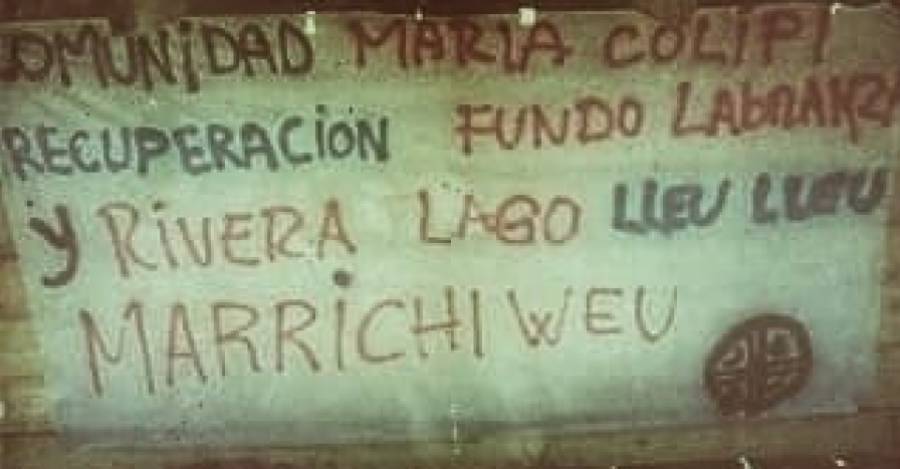 COMUNIDAD MARIA COLIPI
RECUPERACIÓN FUNDO LAbRANZA
y RiVERA LAGO LLEU LLEU
MARRiCHI WEU